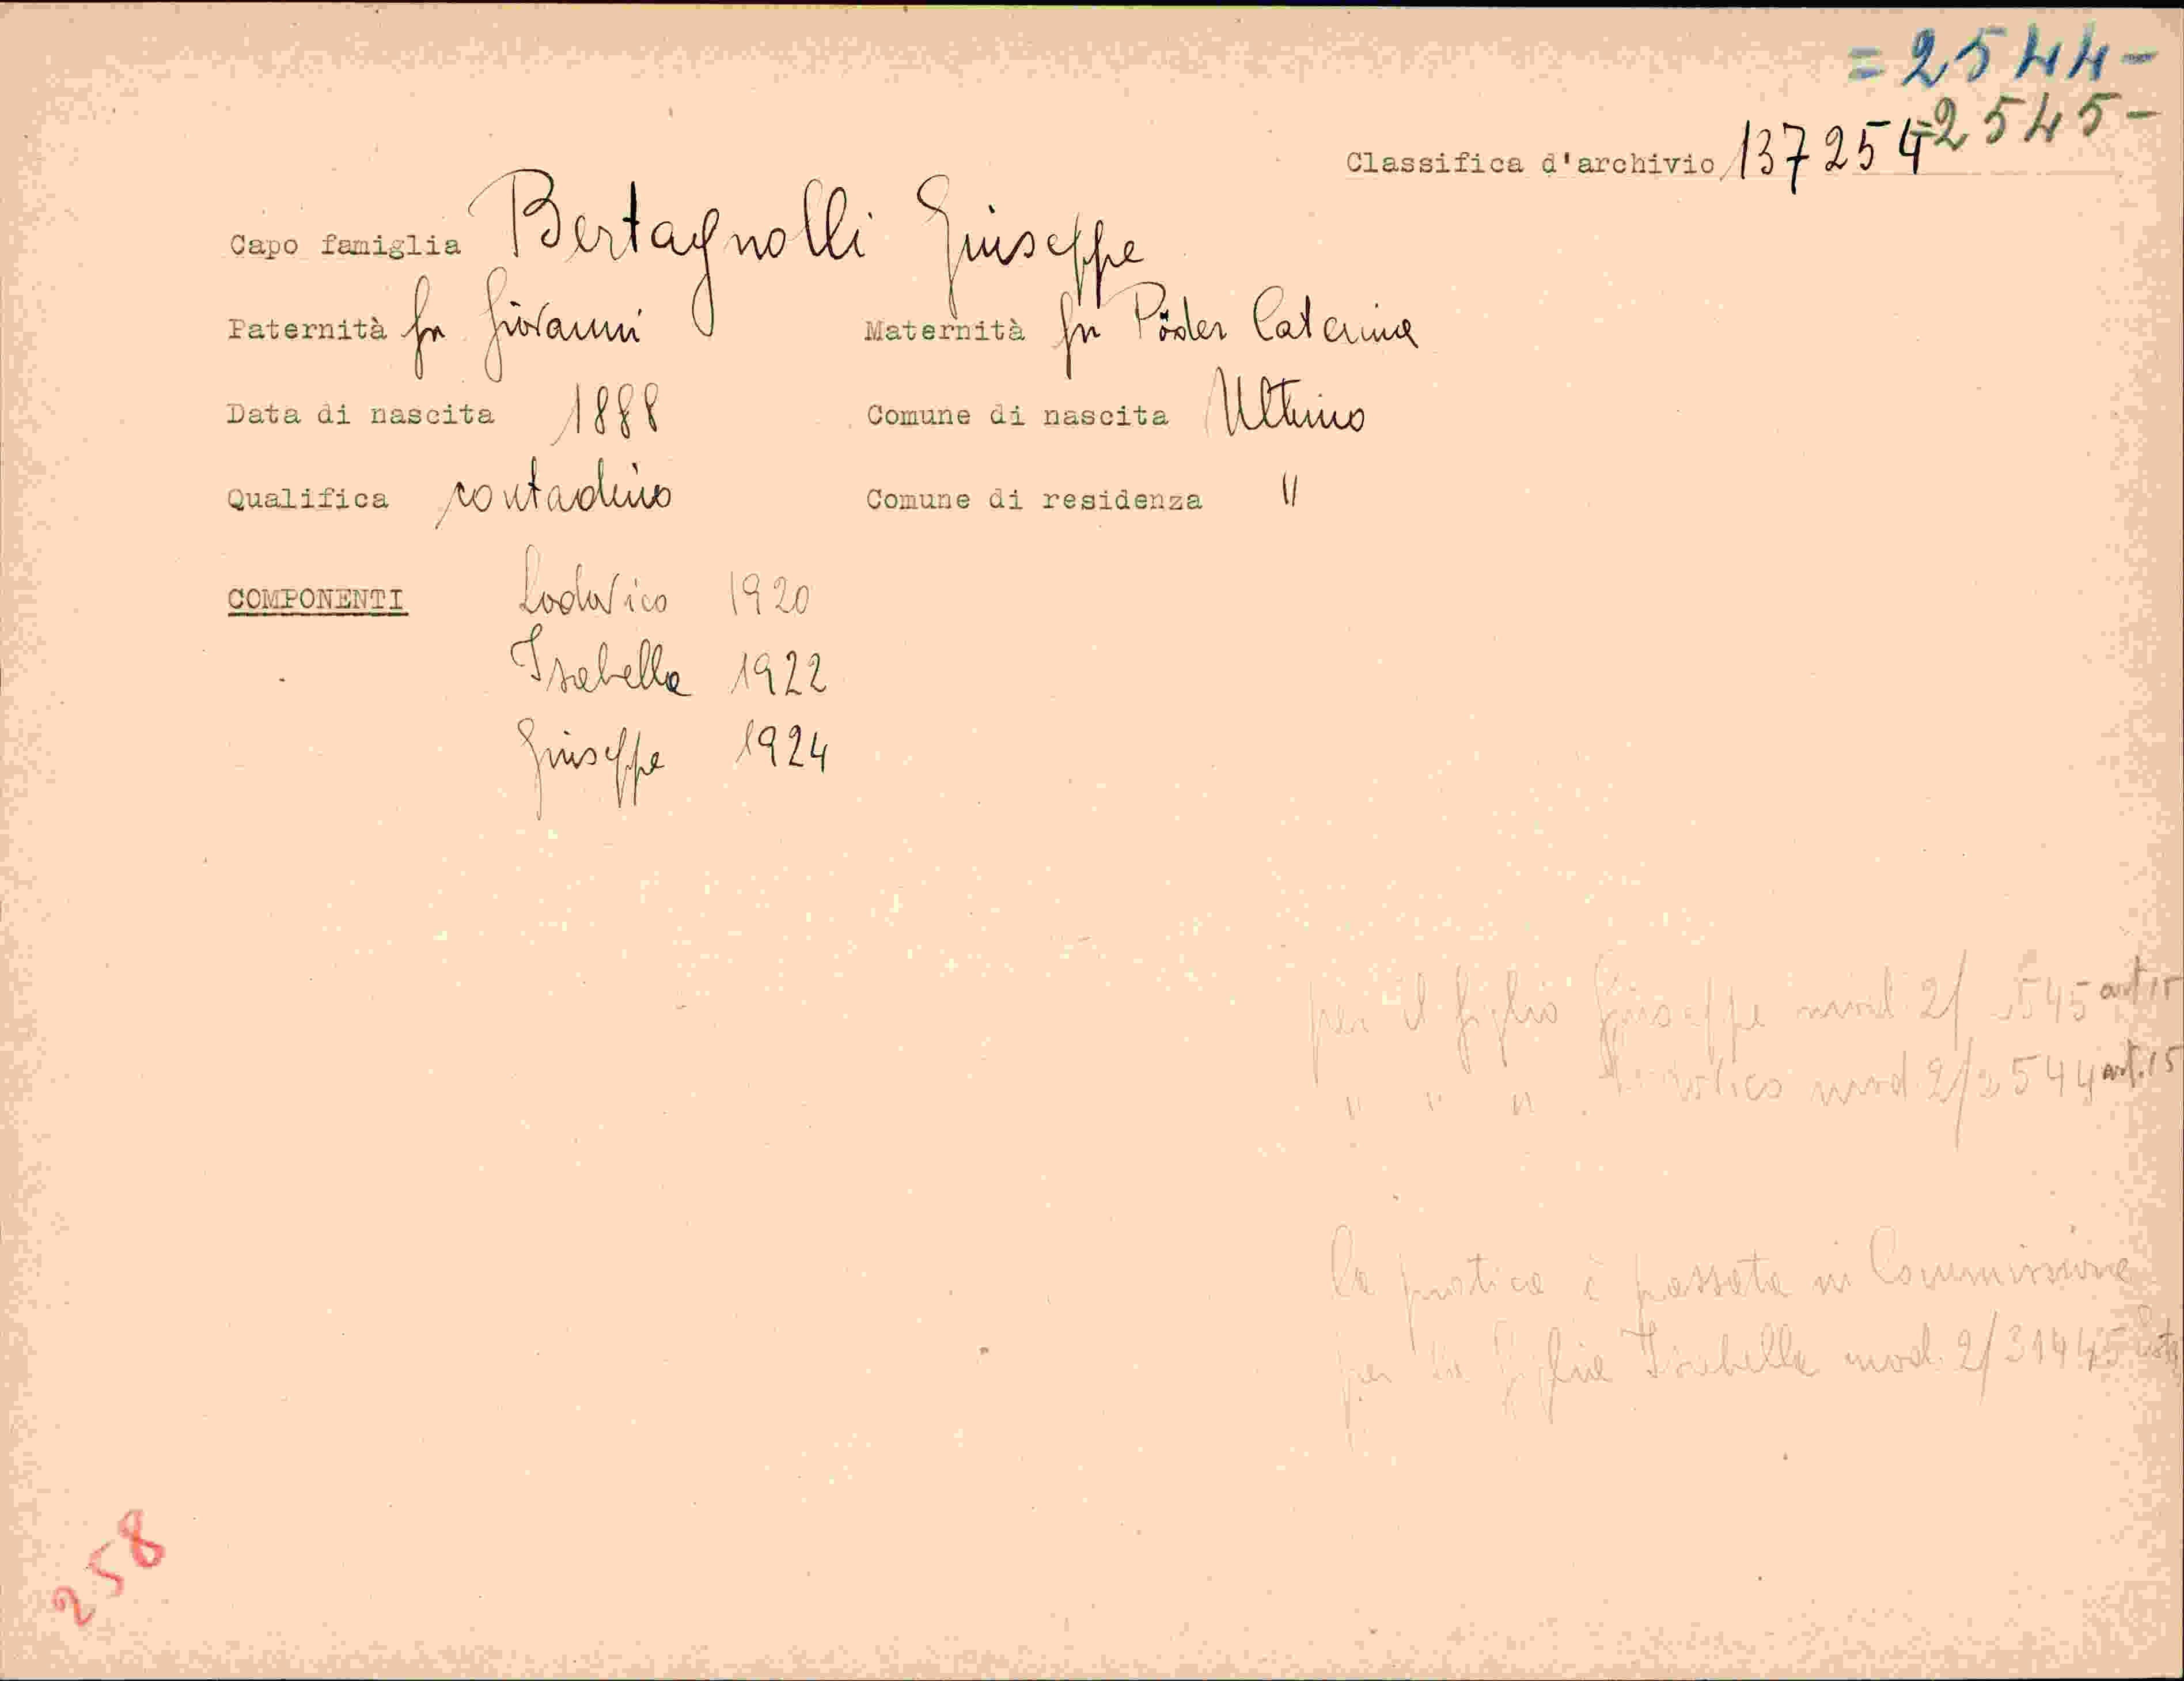 = 2544-
-2545-
Classifica d'archivio 137254
Capo famiglia Bertagnolli Giuseppe
Paternità fu Giovanni Maternità fu Pöder Caterina
Data di nascita 1888 Comune di nascita Ultimo
Qualifica contadino Comune di residenza "
COMPONENTI Lodovico 1920
Isabella 1922
Giuseppe 1924
per il figlio Giuseppe mod. 2/2545 art 15
" " " Lodovico mod 2/2544 art. 15
la pratica è passata in Commissione
per la figlia Isabella mod. 2/31445
258